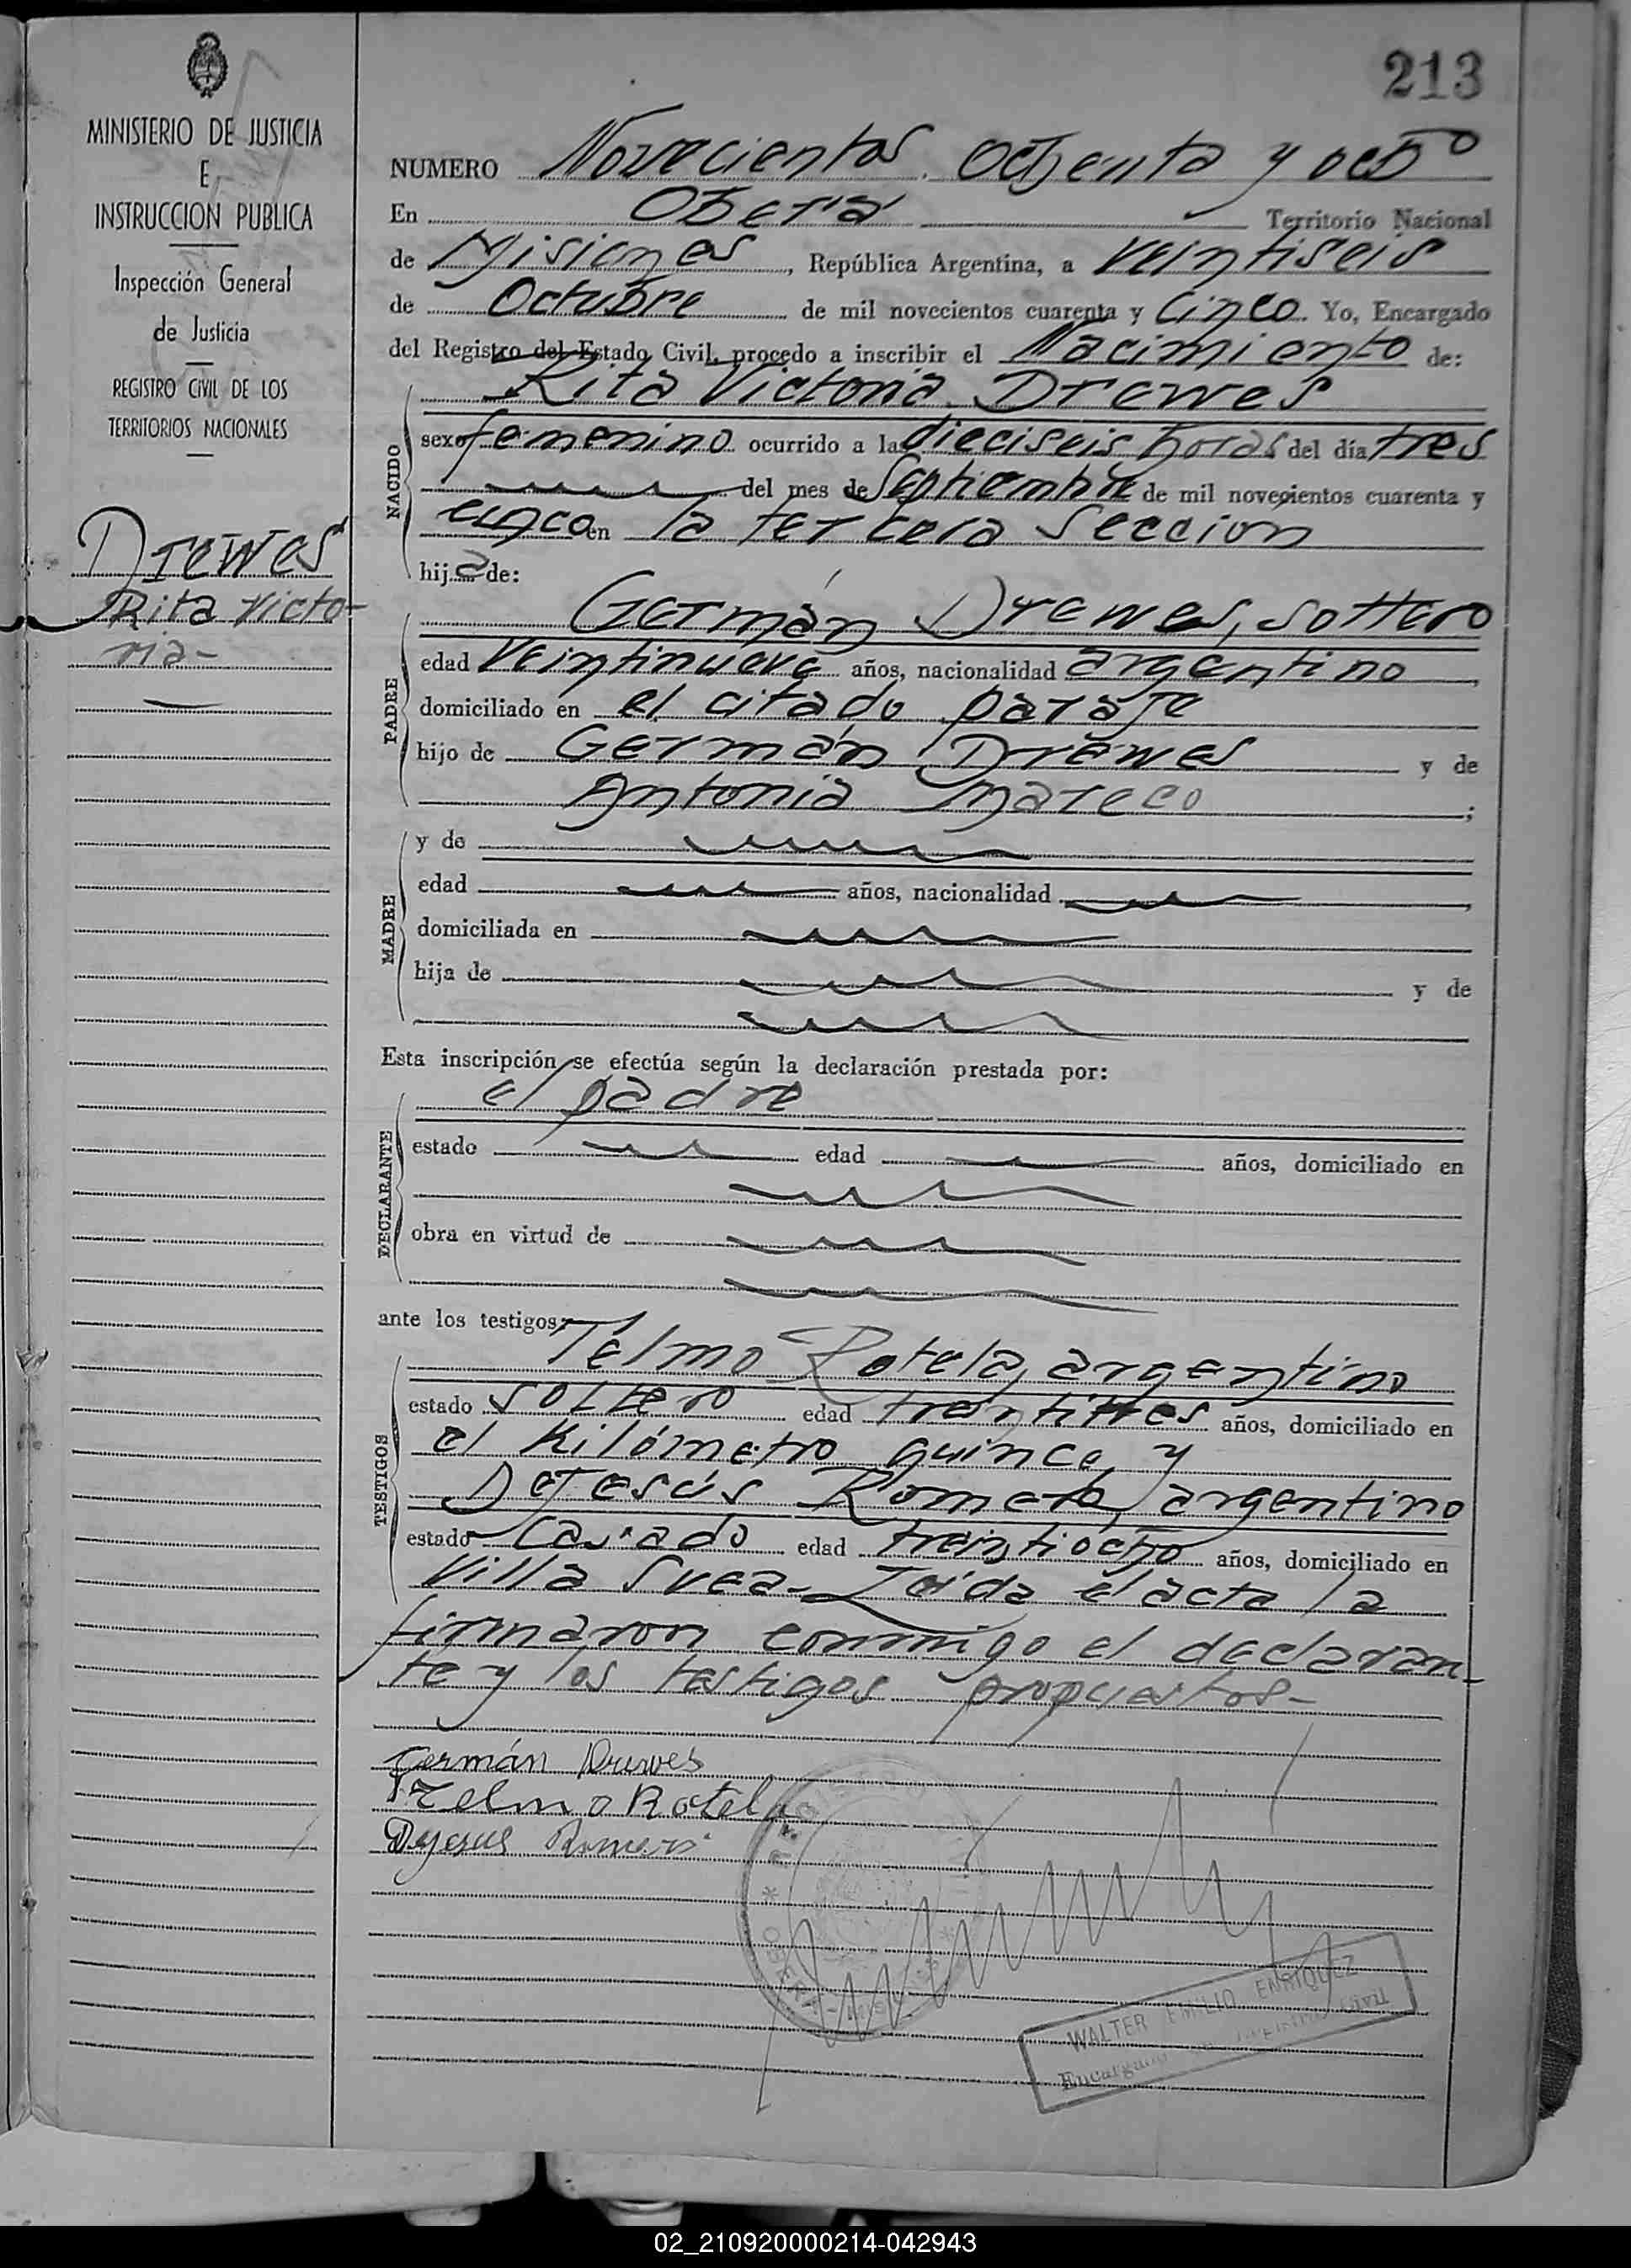 213
MINISTERIO DE JUSTICIA
E
INSTRUCCION PUBLICA
Inspección General
de Justicia
REGISTRO CIVIL DE LOS
TERRITORIOS NACIONALES
Drewes
Rita Victo-
ria-
NUMERO Novecientos ochenta y ocho
En Oberá Territorio Nacional
de Misiones, República Argentina, a veintiseis
de Octubre de mil novecientos cuarenta y cinco. Yo, Encargado
del Registro del Estado Civil, procedo a inscribir el Nacimiento de:
NACIDO
Rita Victoria Drewes
sexo femenino ocurrido a las dieciseis horas del día tres
del mes de Septiembre de mil novecientos cuarenta y
cinco en la tercera seccion
hija de:
PADRE
Germán Drewes, soltero
edad veintinueve años, nacionalidad argentino,
domiciliado en el citado paraje
hijo de Germán Drewes y de
Antonia Mareco;
MADRE
y de
edad años, nacionalidad ,
domiciliada en
hija de y de
Esta inscripción se efectúa según la declaración prestada por:
DECLARANTE
el padre
estado edad años, domiciliado en
obra en virtud de
ante los testigos:
TESTIGOS
Telmo Rotela, argentino
estado soltero edad treintitres años, domiciliado en
el Kilómetro quince, y
Dejesús Romero, argentino
estado casado edad treintiocho años, domiciliado en
Villa Svea- Leida el acta la
firmaron conmigo el declaran-
te y los testigos propuestos-
Germán Drewes
Telmo Rotela
Dejesus Romero
WALTER EMILIO ENRIQUEZ
Encargado REGISTRO CIVIL
02_210920000214-042943